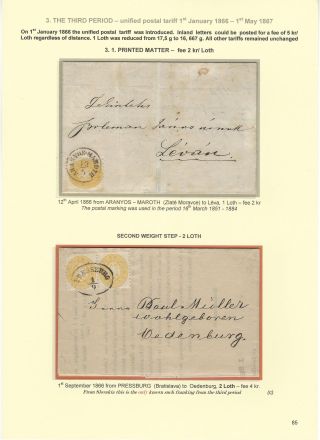 3. THE THIRD PERIOD – unified postal tariff 1st January 1866 – 1st May 1867
On 1st January 1866 the unified postal tariff was introduced. Inland letters could be posted for a fee of 5 kr/
Loth regardless of distance. 1 Loth was reduced from 17,5 g to 16, 667 g. All other tariffs remained unchanged
3. 1. PRINTED MATTER – fee 2 kr/ Loth
János úrnak
Léván.
12th April 1866 from ARANYOS – MAROTH (Zlaté Moravce) to Léva, 1 Loth – fee 2 kr
The postal marking was used in the period 16th March 1851 - 1864
SECOND WEIGHT STEP - 2 LOTH
PRESSBURG
1
9
Herrn Paul Müller
wohlgeboren
Oedenburg.
1st September 1866 from PRESSBURG (Bratislava) to Oedenburg, 2 Loth – fee 4 kr.
From Slovakia this is the only known such franking from the third period
85